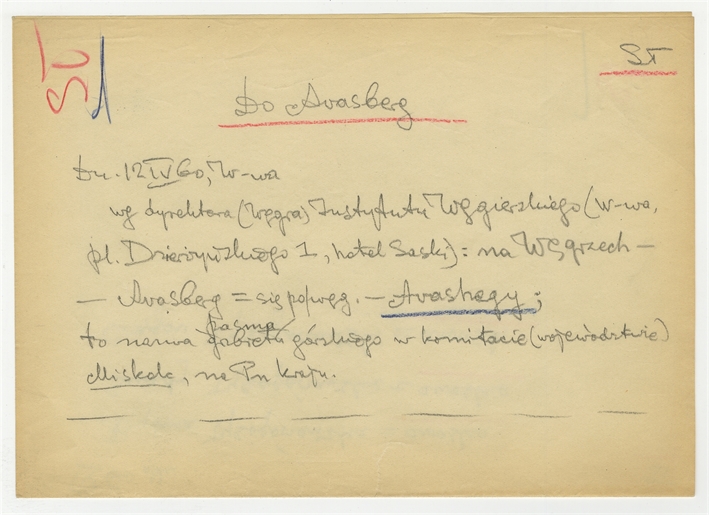 ST
ST
Do Avasberg
Dn. 12 IV 60, W-wa
wg dyrektora (Węgra) Instytutu Węgierskiego (W-wa,
pl. Dzierżyńskiego 1, hotel Saski): na Węgrzech —
— Avasberg = się po węg. — Avashegy;
pasma
to nazwa górskiego w komitacie (województwie)
Miskolc, na Pn kraju.